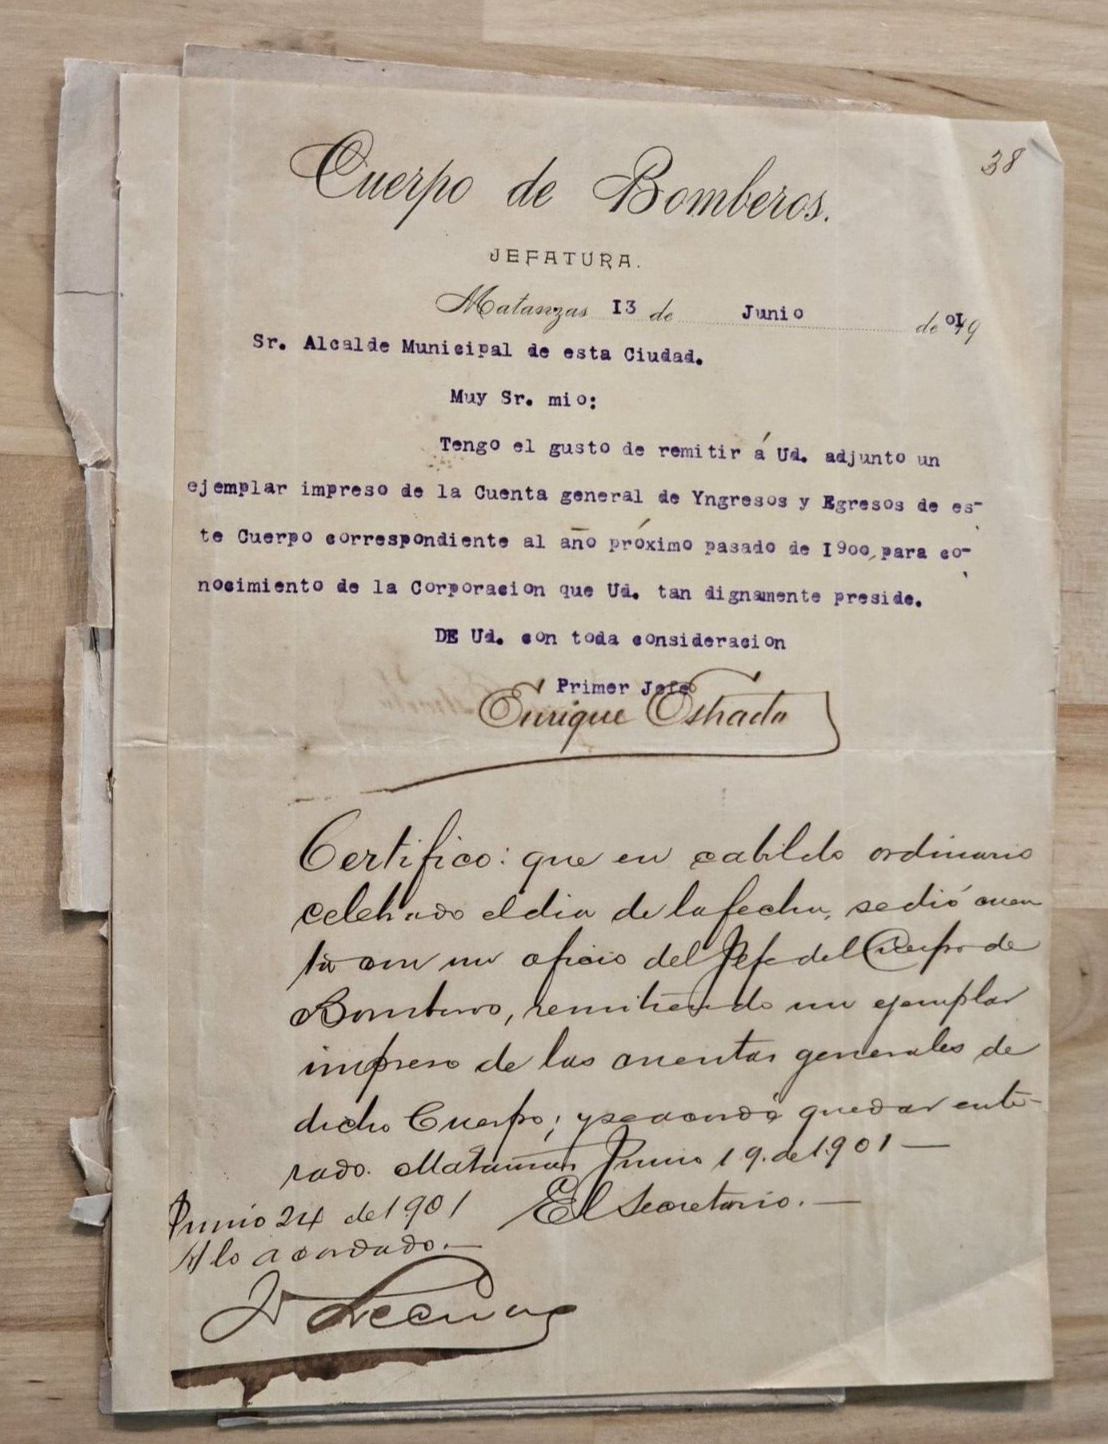 38
Cuerpo de Bomberos.
JEFATURA.
Matanzas 13 de Junio de 01
Sr. Alcalde Municipal de esta Ciudad.
Muy Sr. mio:
Tengo el gusto de remitir á Ud. adjunto un
ejemplar impreso de la Cuenta general de Yngresos y Egresos de es-
te Cuerpo correspondiente al año próximo pasado de 1900, para co-
nocimiento de la Corporacion que Ud. tan dignamente preside.
DE Ud. con toda consideracion
Primer Jefe
Enrique Estrada
Certifico: que en cabildo ordinario
celebrado el dia de la fecha, se dió cuen
ta con un oficio del Jefe del Cuerpo de
Bomberos, remitiendo un ejemplar
impreso de las cuentas generales de
dicho Cuerpo; y se acordó quedar ente-
rado. Matanzas Junio 19. de 1901 —
El Secretario. —
Junio 24 de 1901
A lo acordado. —